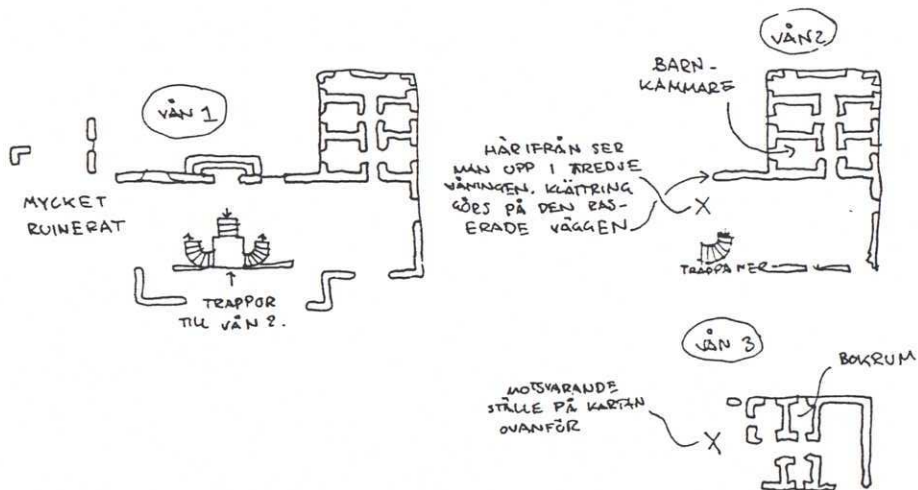 VÅN 1
MYCKET
RUINERAT
TRAPPOR
TILL VÅN 2.
VÅN 2
BARN-
KAMMARE
HÄRIFRÅN SER
MAN UPP I TREDJE
VÅNINGEN. KLÄTTRING
GÖRS PÅ DEN RAS-
ERADE VÄGGEN
X
TRAPPA NER
VÅN 3
BOKRUM
MOTSVARANDE
STÄLLE PÅ KARTAN
OVANFÖR
X